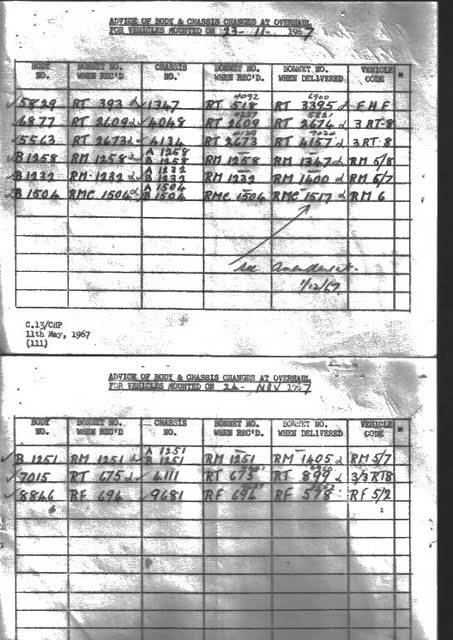 ADVICE OF BODY & CHASSIS CHANGES AT OVERHAUL
FOR VEHICLES MOUNTED ON 23-11-1967
BODY NO. BONNET NO. WHEN REC'D CHASSIS NO. BONNET NO. WHEN REC'D BONNET NO. WHEN DELIVERED VEHICLE CODE *
4092 6900
✓5829 RT 393 ✓1347 RT 518 RT 3395 F.H.F
✓6877 RT 2609 ✓4048 RT 2609 RT 2674 3 RT-8
✓5563 RT 2673 ✓4134 RT 2673 RT 4157 3RT-8
A 1258
✓B1258 RM 1258 B 1258 RM 1258 RM 1347 RM 5/8
A 1232
✓B1232 RM 1232 B 1232 RM 1232 RM 1400 RM 5/7
A 1504
✓B1504 RMC 1504 B 1504 RMC 1504 RMC 1517 RM 6
see Amendment.
1/12/67.
C.13/CHP
11th May, 1967
(111)
ADVICE OF BODY & CHASSIS CHANGES AT OVERHAUL
FOR VEHICLES MOUNTED ON 24-NOV 1967
BODY NO. BONNET NO. WHEN REC'D CHASSIS NO. BONNET NO. WHEN REC'D. BONNET NO. WHEN DELIVERED VEHICLE CODE *
A 1251
✓B1251 RM 1251 B 1251 RM 1251 RM 1405 RM 5/7
✓7015 RT 675 ✓4111 RT 675 RT 899 3/3 RT8
✓8846 RF 694 ✓9681 RF 694 RF 578 RF 5/2